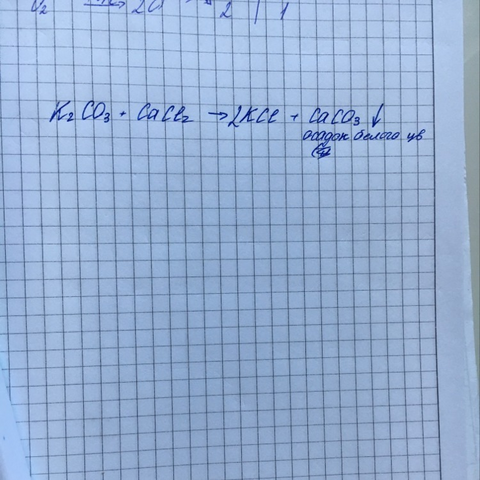 K₂CO₃ + CaCl₂ → 2KCl + CaCO₃ ↓
осадок белого цв